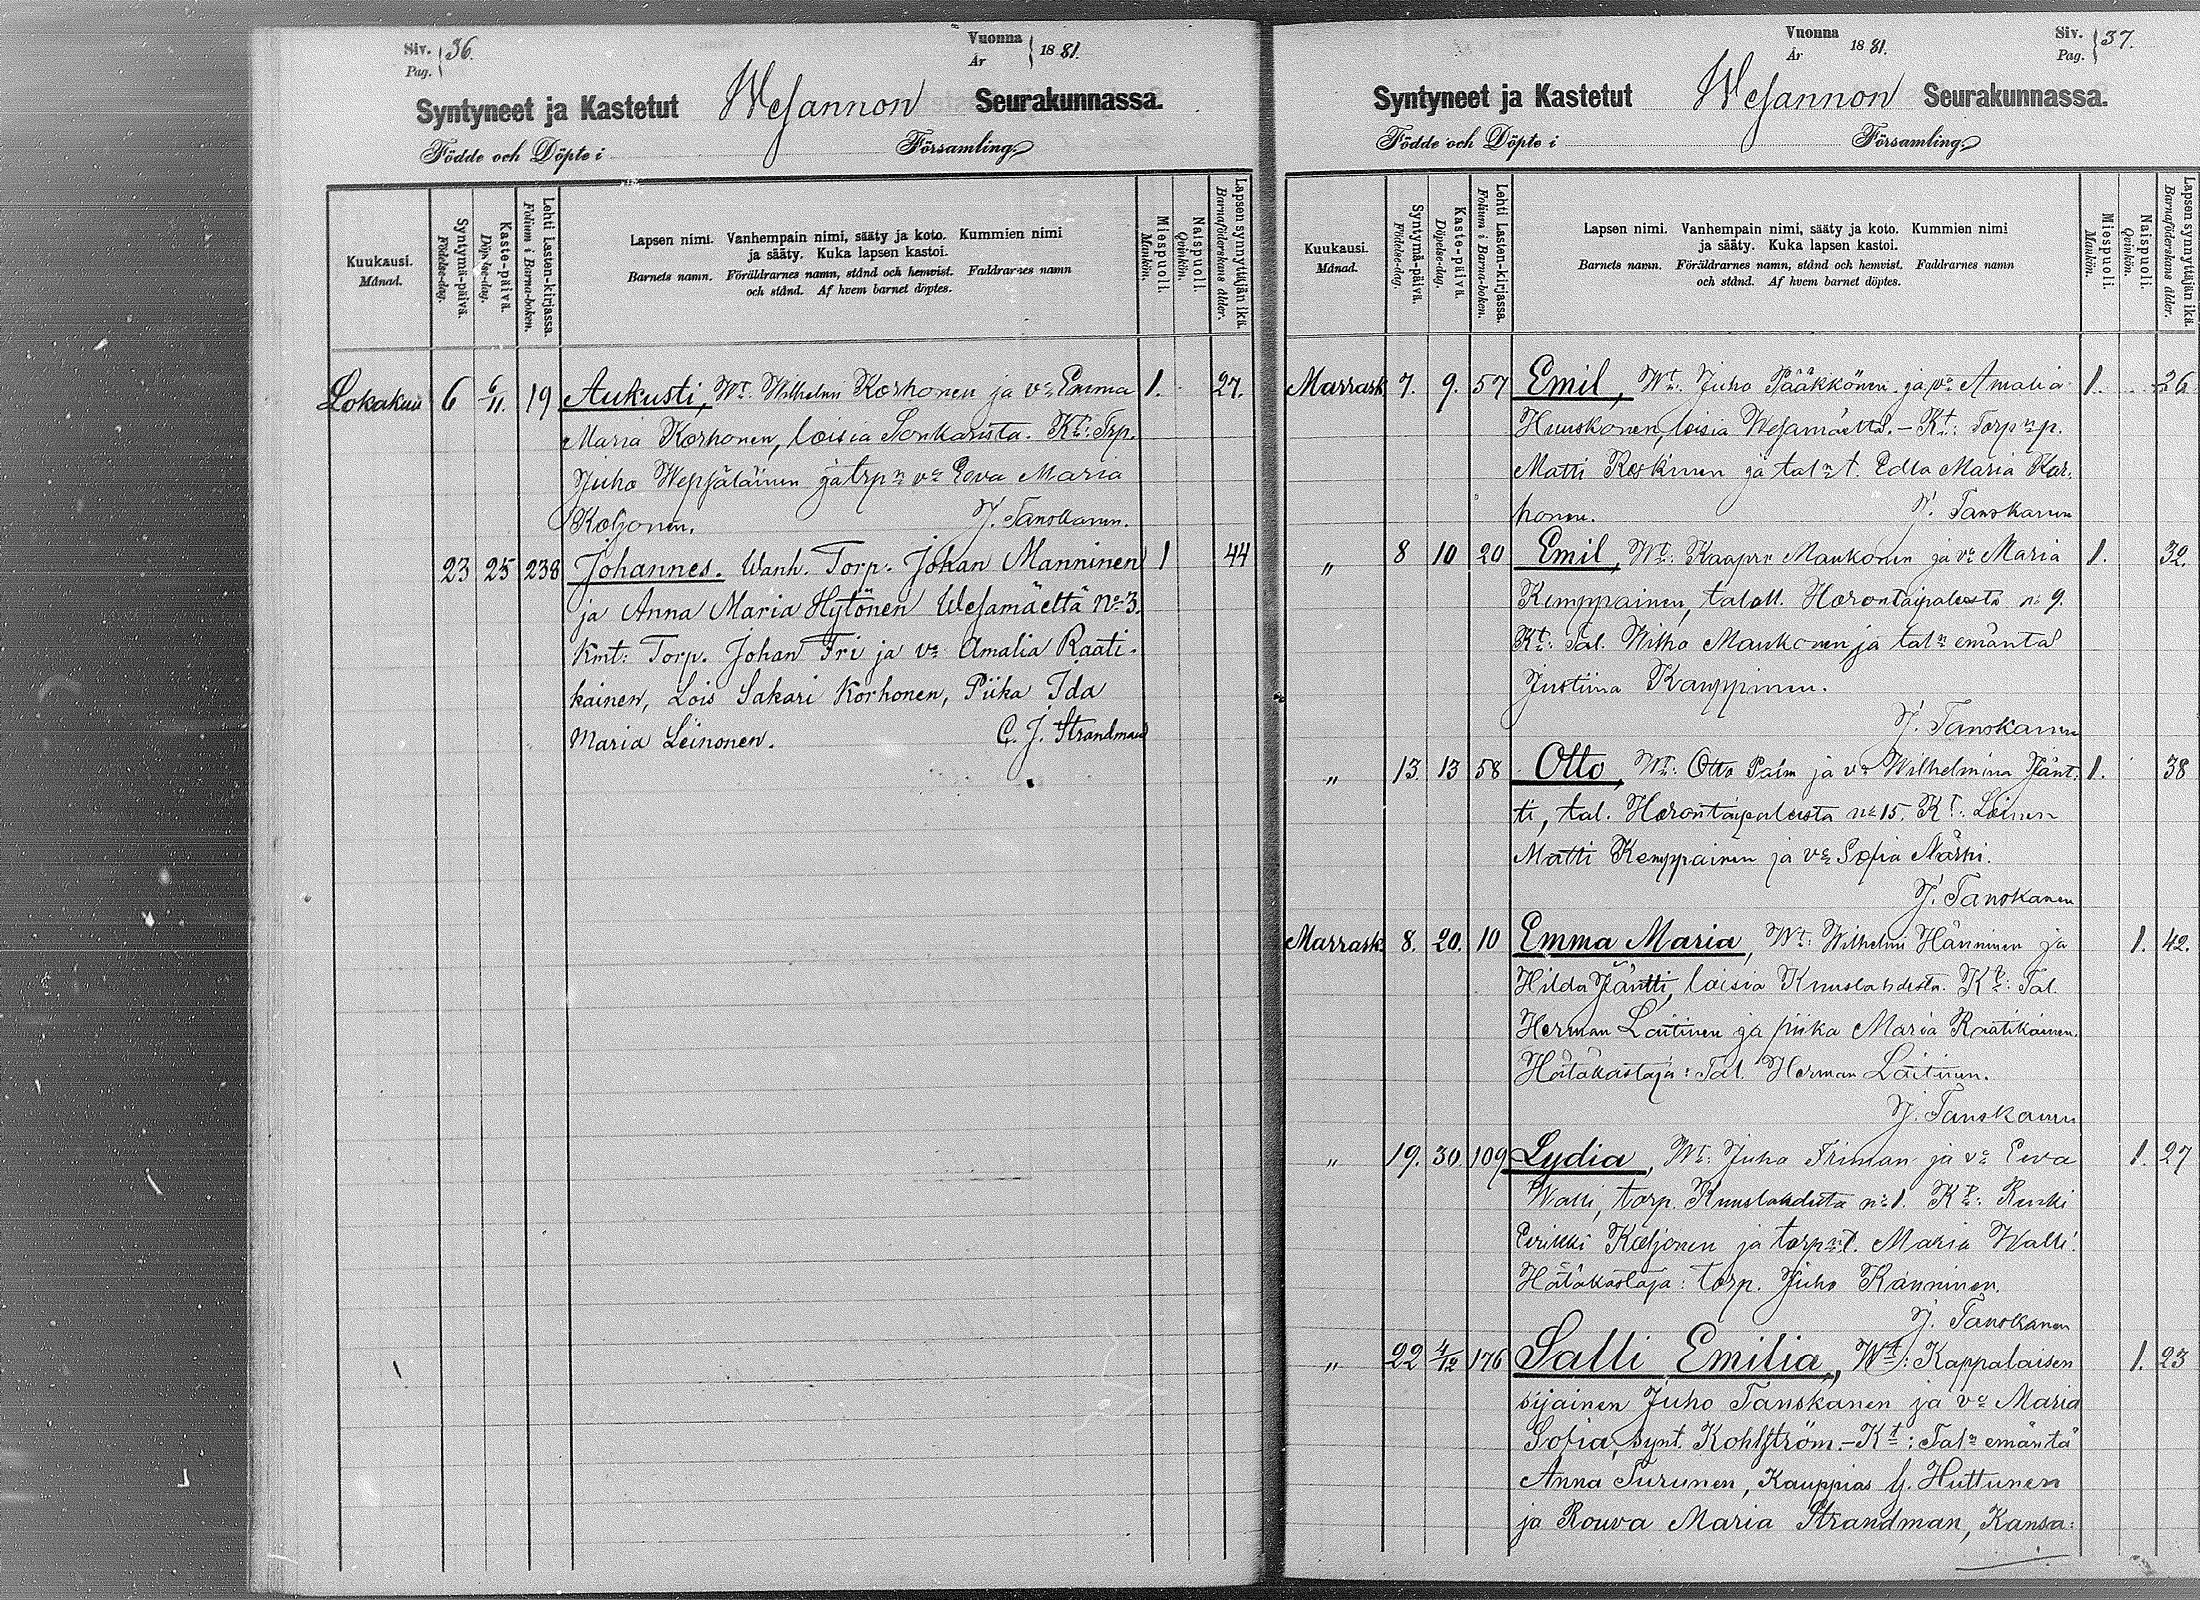 Siv. Pag. 36. Vuonna År 1881.
Syntyneet ja Kastetut Wesannon Seurakunnassa.
Födde och Döpte i Församling.
Kuukausi. Månad.
Syntymä-päivä. Födelse-dag.
Kaste-päivä. Döpelse-dag.
Lehti Lasten-kirjassa. Folium i Barna-boken.
Lapsen nimi. Vanhempain nimi, sääty ja koto. Kummien nimi
ja sääty. Kuka lapsen kastoi.
Barnets namn. Föräldrarnes namn, stånd och hemvist. Faddrarnes namn
och stånd. Af hvem barnet döptes.
Miespuoli. Mankön.
Naispuoli. Qvinkön.
Lapsen synnyttäjän ikä. Barnaföderskans ålder.
Lokakuu 6 6/11. 19 Aukusti, Wt: Wilhelmi Korhonen ja vo Emma 1. 27.
Maria Korhonen, loisia Sonkarista. Kt: Trp.
Juho Wepsäläinen ja trpn vo Eeva Maria
Koljonen. J. Tanskanen.
23 25 238 Johannes. Wanh. Torp. Johan Manninen 1 44
ja Anna Maria Hytönen Wesamäeltä No 3.
Kmt: Torp. Johan Fri ja vo Amalia Raati-
kainen, Lois Sakari Korhonen, Piika Ida
Maria Leinonen. C. J. Strandman
Vuonna År 1881. Siv. Pag. 37.
Syntyneet ja Kastetut Wesannon Seurakunnassa.
Födde och Döpte i Församling.
Kuukausi. Månad.
Syntymä-päivä. Födelse-dag.
Kaste-päivä. Döpelse-dag.
Lehti Lasten-kirjassa. Folium i Barna-boken.
Lapsen nimi. Vanhempain nimi, sääty ja koto. Kummien nimi
ja sääty. Kuka lapsen kastoi.
Barnets namn. Föräldrarnes namn, stånd och hemvist. Faddrarnes namn
och stånd. Af hvem barnet döptes.
Miespuoli. Mankön.
Naispuoli. Qvinkön.
Lapsen synnyttäjän ikä. Barnaföderskans ålder.
Marrask. 7. 9. 57 Emil, Wt: Juho Pääkkönen ja vo Amalia 1. 26
Huuskonen, loisia Wesamäeltä. – Kt: Torpn p.
Matti Koskinen ja taln t. Edla Maria Kor-
honen. J. Tanskanen
„ 8 10 20 Emil, Wt: Kaapro Maukonen ja vo Maria 1. 32.
Kemppainen, taloll. Horontaipaleesta no 9.
Kt: Tal. Wilho Maukonen ja taln emäntä
Justiina Kauppinen.
J. Tanskanen
„ 13 13 58 Otto, Wt: Otto Palm ja vo Wilhelmina Jänt- 1. 38
ti, tal. Horontaipaleesta no 15. Kt: Loinen
Matti Kemppainen ja vo Sofia Närhi.
J. Tanskanen
Marrask. 8. 20. 10 Emma Maria, Wt: Wilhelmi Hänninen ja 1. 42.
Hilda Jäntti, loisia Kuuslahdesta. Kt: Tal.
Herman Laitinen ja piika Maria Raatikainen.
Hätäkastaja: Tal. Herman Laitinen.
J. Tanskanen
„ 19. 30. 109 Lydia, Wt: Juho Friman ja vo Eeva 1. 27
Walli, torp. Kuuslahdesta no 1. Kt: Renki
Eerikki Koljonen ja torpn t. Maria Walli.
Hätäkastaja: torp. Juho Känninen.
J. Tanskanen
„ 22 4/12 176 Salli Emilia, Wt: Kappalaisen 1. 23
sijainen Juho Tanskanen ja vo Maria
Sofia, synt. Kohlström. – Kt: Taln emäntä
Anna Turunen, Kauppias G. Huttunen
ja Rouva Maria Strandman, Kansa-